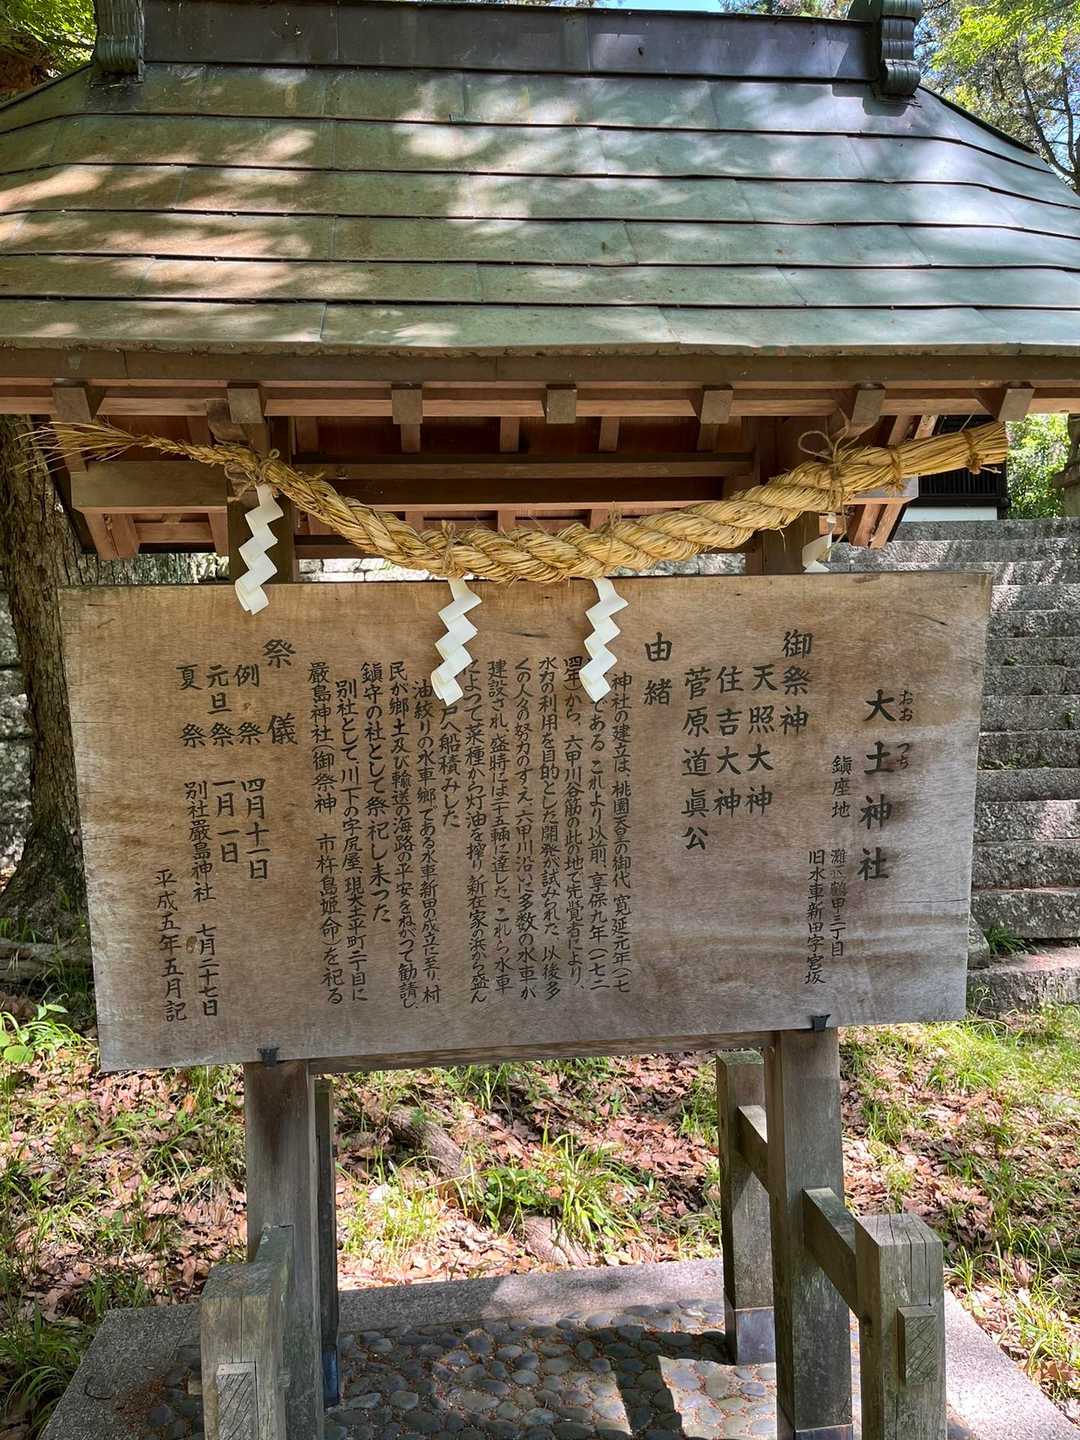 大土神社
おお つち
鎮座地 灘区鶴甲三丁目
旧水車新田字宮坂
御祭神
天照大神
住吉大神
菅原道眞公
由緒
神社の建立は、桃園天皇の御代、寛延元年(一七
四年)から、六甲川谷筋の此の地で先覚者により、
である これより以前、享保九年(一七二
水力の利用を目的とした開発が試みられた 以後多
くの人々の努力のすえ、六甲川沿いに多数の水車が
建設され 盛時には二十五輛に達した これら水車
によって菜種から灯油を搾り 新在家の浜から盛ん
戸へ船積みした
油絞りの水車郷である水車新田の成立に至り 村
民が郷土及び輸送の海路の平安をねがって勧請し
鎮守の社として祭祀し来った
別社として、川下の字尻屋、現大土平町二丁目に
厳島神社(御祭神 市杵島姫命)を祀る
祭儀
例祭 四月十一日
元旦祭 一月一日
夏祭 別社厳島神社 七月二十七日
平成五年五月記